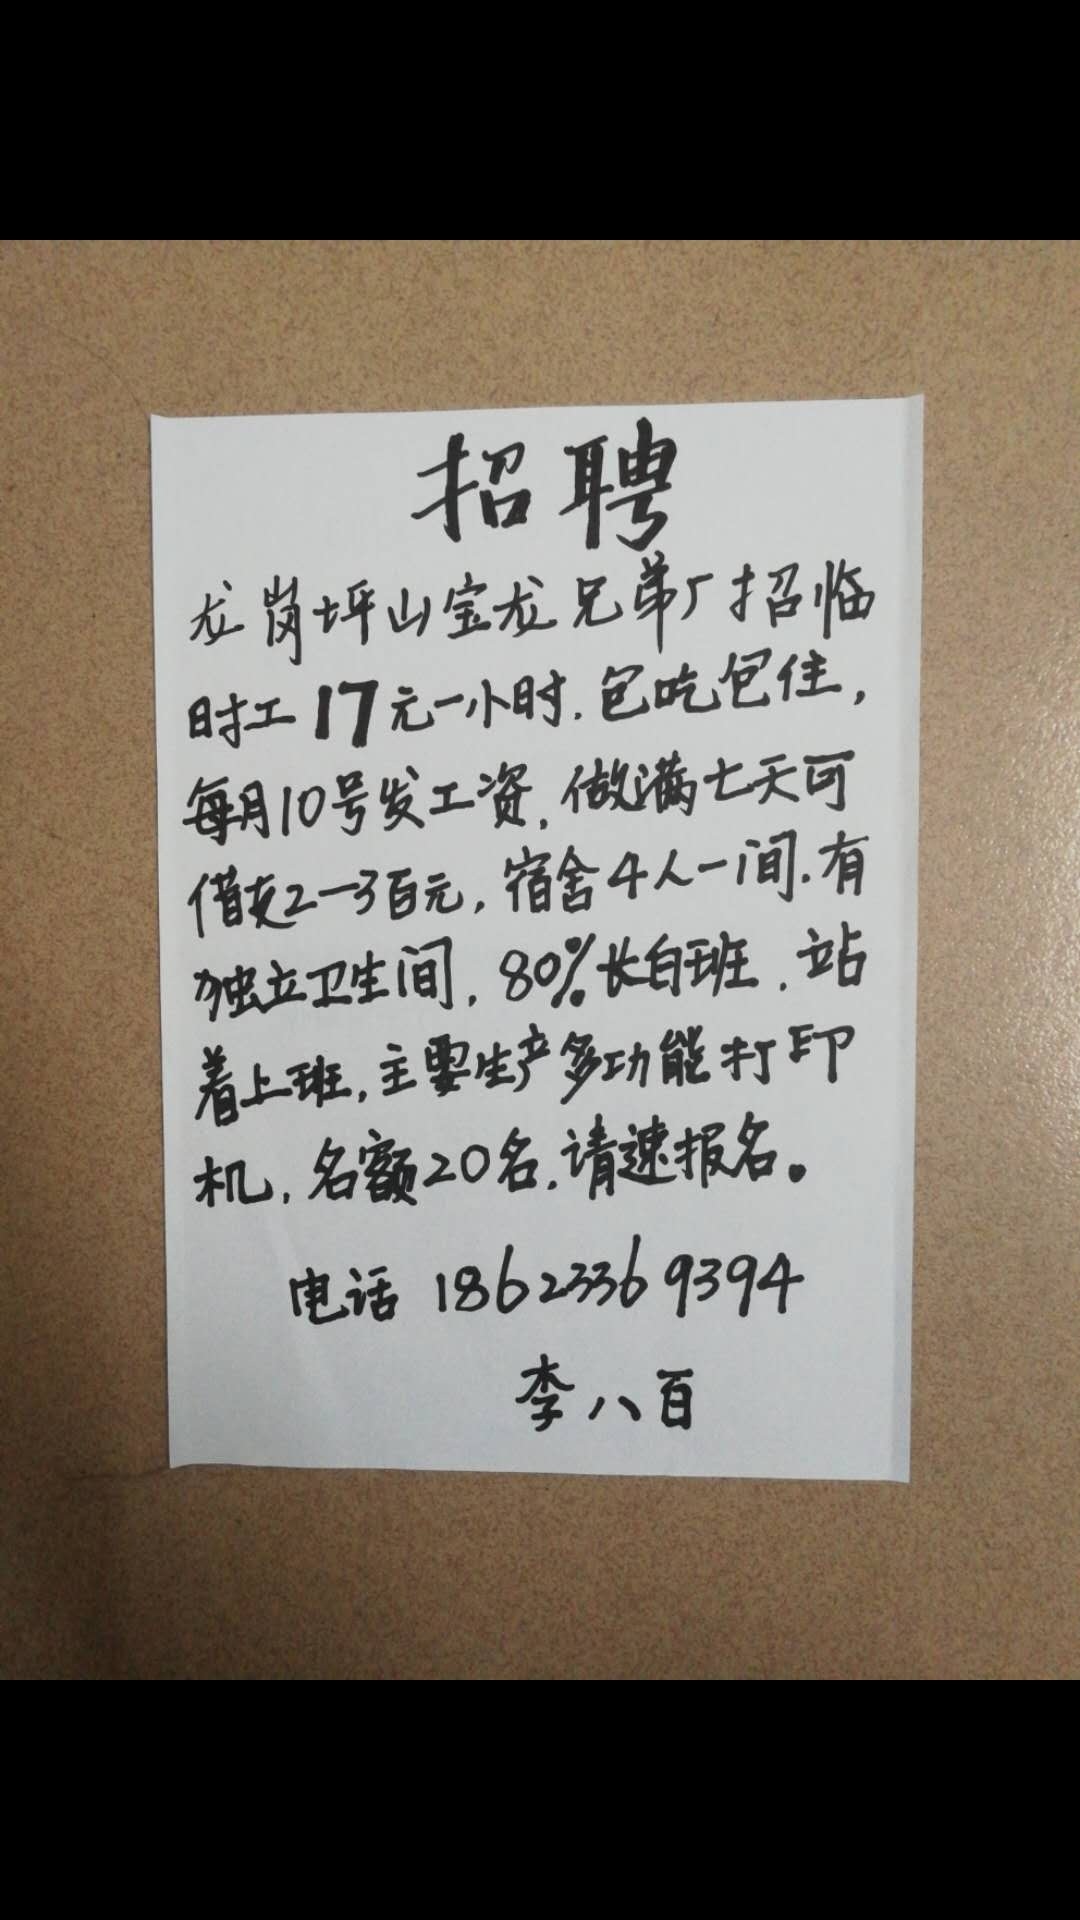 招聘
龙岗坪山宝龙兄弟厂招临
时工17元一小时.包吃包住,
每月10号发工资,做满七天可
借支2一3百元,宿舍4人一间.有
独立卫生间,80%长白班.站
着上班,主要生产多功能打印
机,名额20名,请速报名。
电话 18623369394
李八百